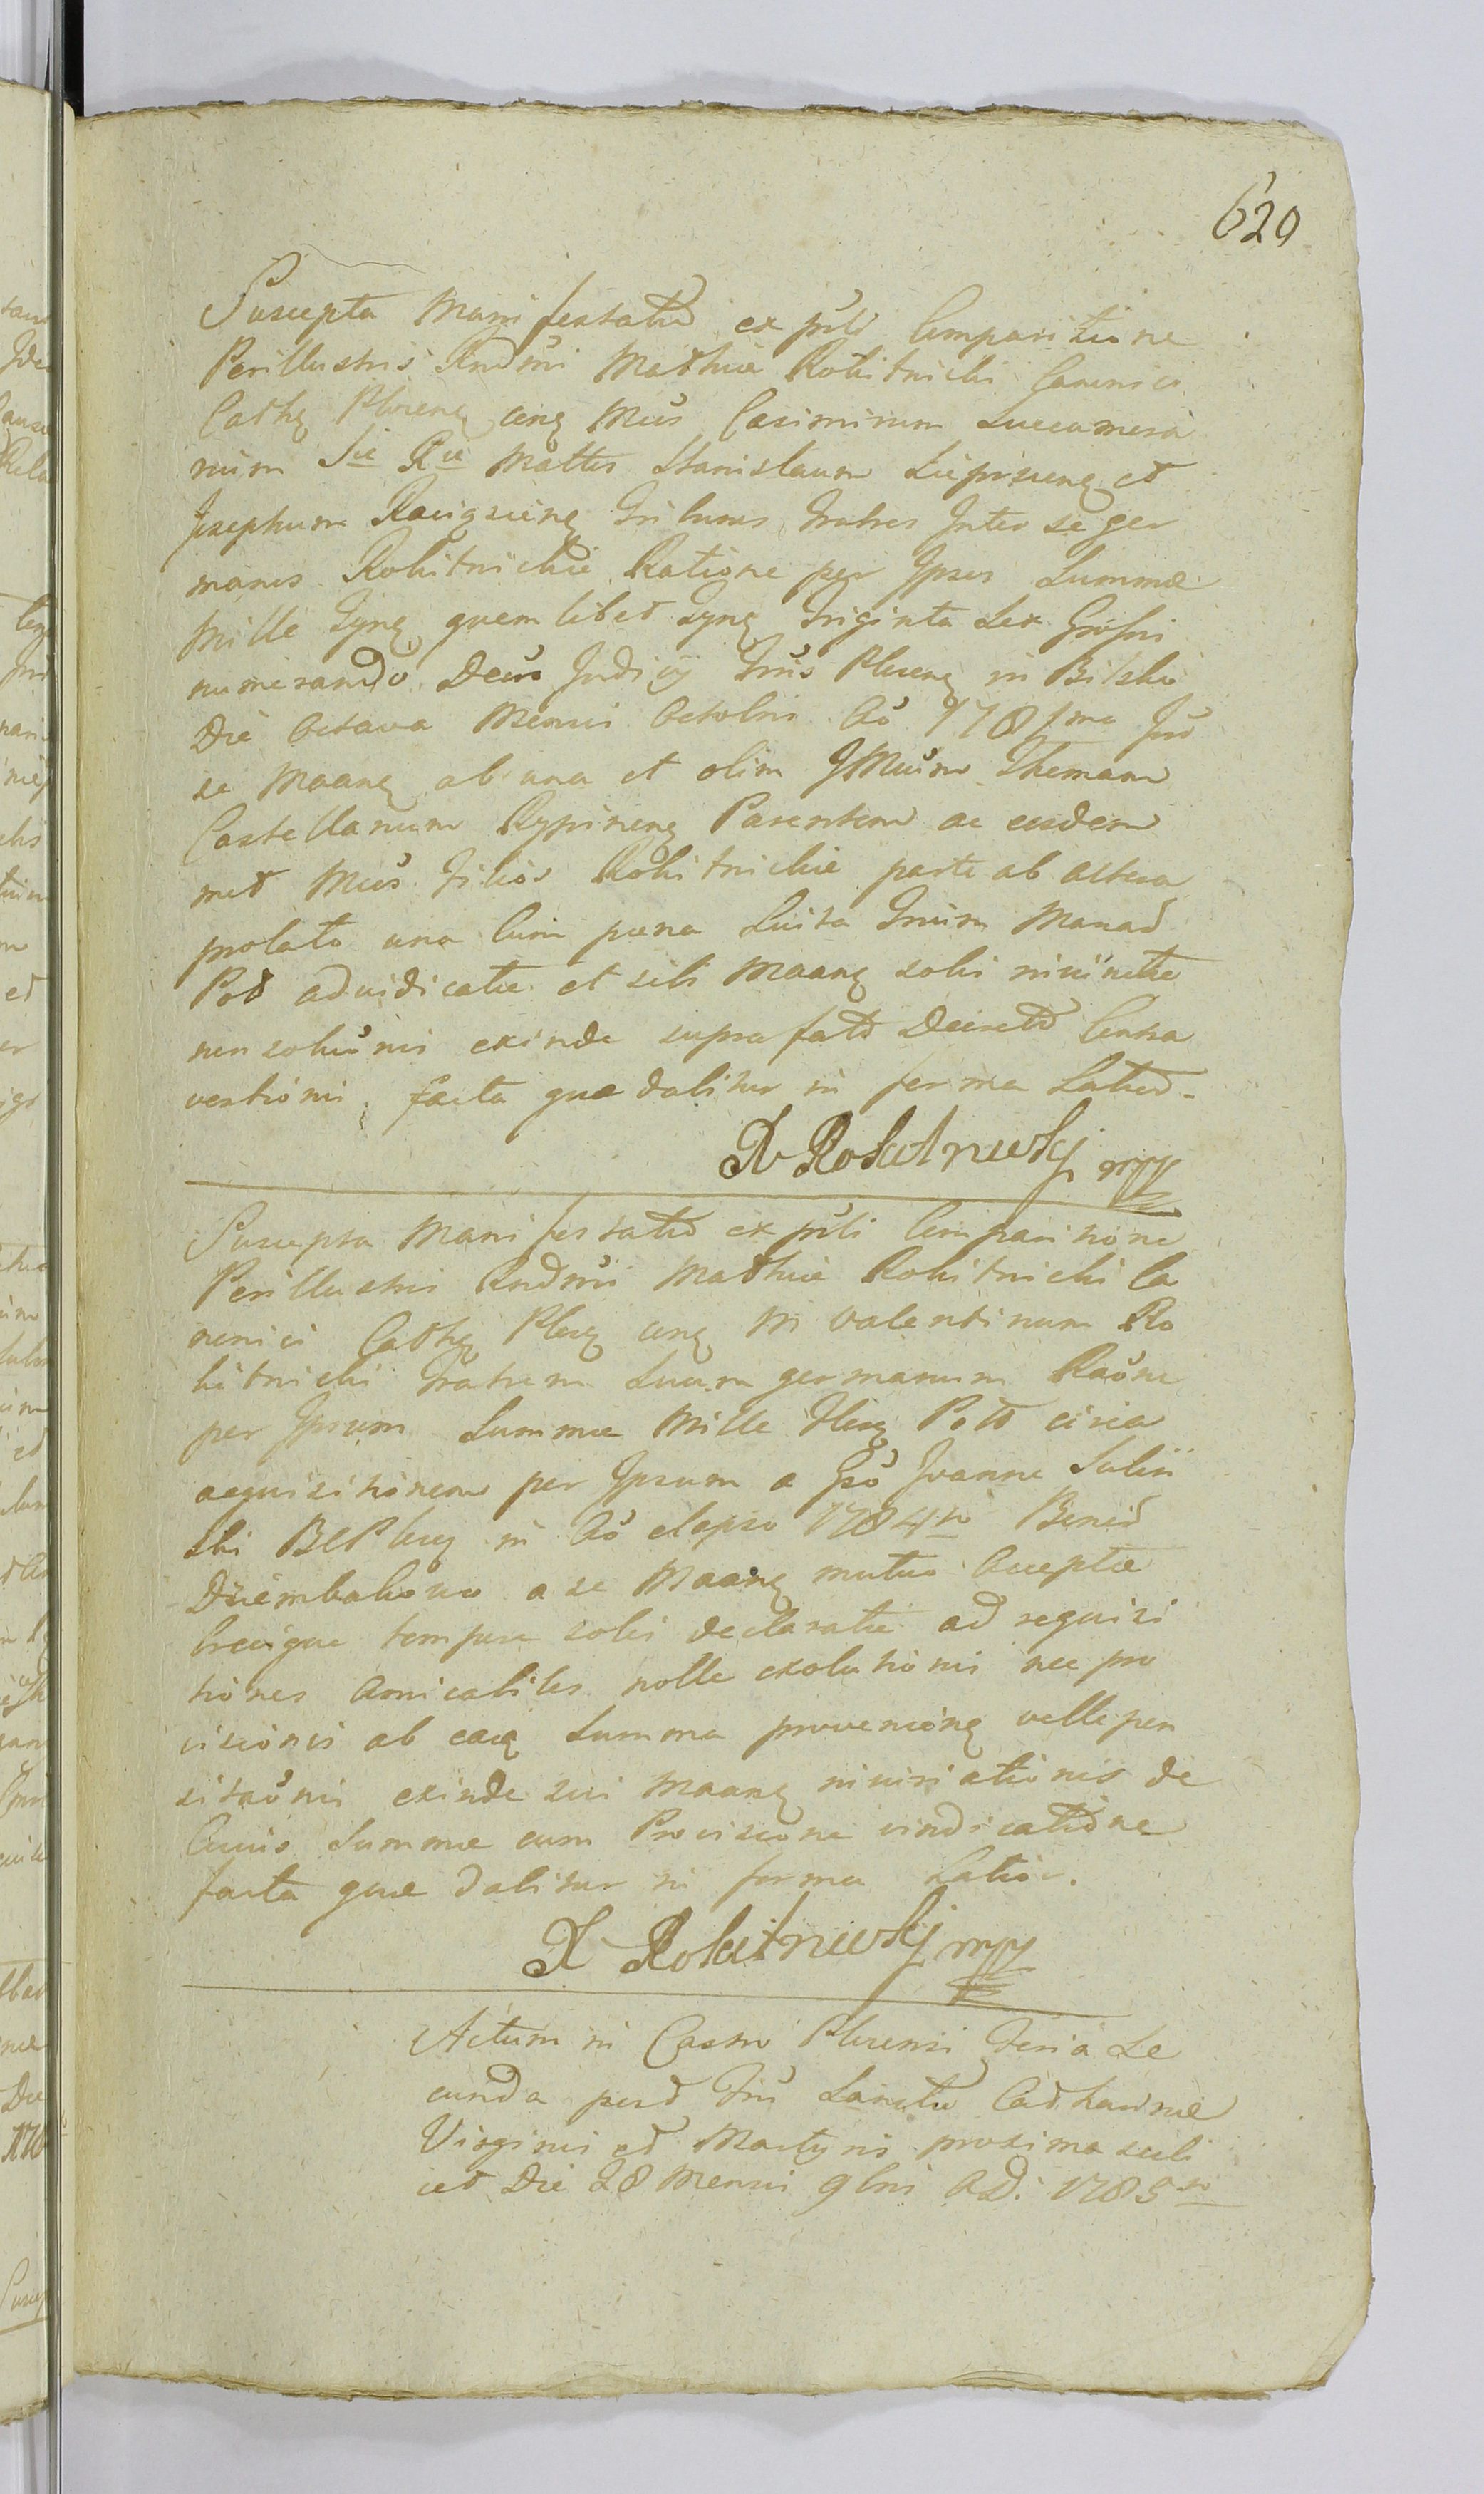 620
Suscepta Manifestatio ex prsti Comparitione
Perillustris Rndmi Mathiæ Rokitnicki Canonici
Cathe Plocene cine Mcos Casimirum Succamera
rium Sæ Ræ Mattis Stanislaum Lipnicene et
Josephum Raciązcene Tribunos Fratres Inter se ger
manos Rokitnickie Ratione per Ipsos Summæ
Mille Tyne quemlibet Tyne Triginta Sex Grossi
numerando Decto Judicij Trris Plocene in Bilsko
Die Octava Mensis Octobris Ao 1781mo Intr
se Maane ab una et olim JMcum Thomam
Castellanum Rypinene Parentem ac eosdem
met Mcos Filios Rokitnickie parte ab altera
prolato una Cum poena Luita Trium Marcar
Pol adiudicatæ et sibi Maane solvi iniunctæ
non solutionis exinde supra fato Decreto Contra
ventionis facta quæ dabitur in forma Latiori.
X Rokitnicki mpp
Suscepta Manifestatio ex prsti Comparitione
Perillustris Rndmi Mathiæ Rokitnicki Ca
nonici Cathe Ploce cine M Valentinum Ro
kitnicki Fratrem Suum germanum Raone
per Ipsum Summæ Mille Flore Poll circa
acquisitionem per Ipsum a Gso Joanne
ski BCPloce in Ao elapso 1784to Bonor
Dziembakowo a se Maane mutuo Acceptæ
brevique tempore solvi declaratæ ad requisi
tiones Amicabiles nolle exolutionis nec pro
visionis ab eaq Summa provenione velle pen
sitaonis exinde sui Maane iniuriationis de
Cuius Summæ cum Provisione vindicatione
facta quæ dabitur in forma Latior.
X Rokitnicki mpp
Actum in Castro Plocensi Feria Se
cunda post Ftum Sanctæ Catharinæ
Virginis et Martyris proxima scili
cet Die 28 Mensis 9bris AD: 1785to